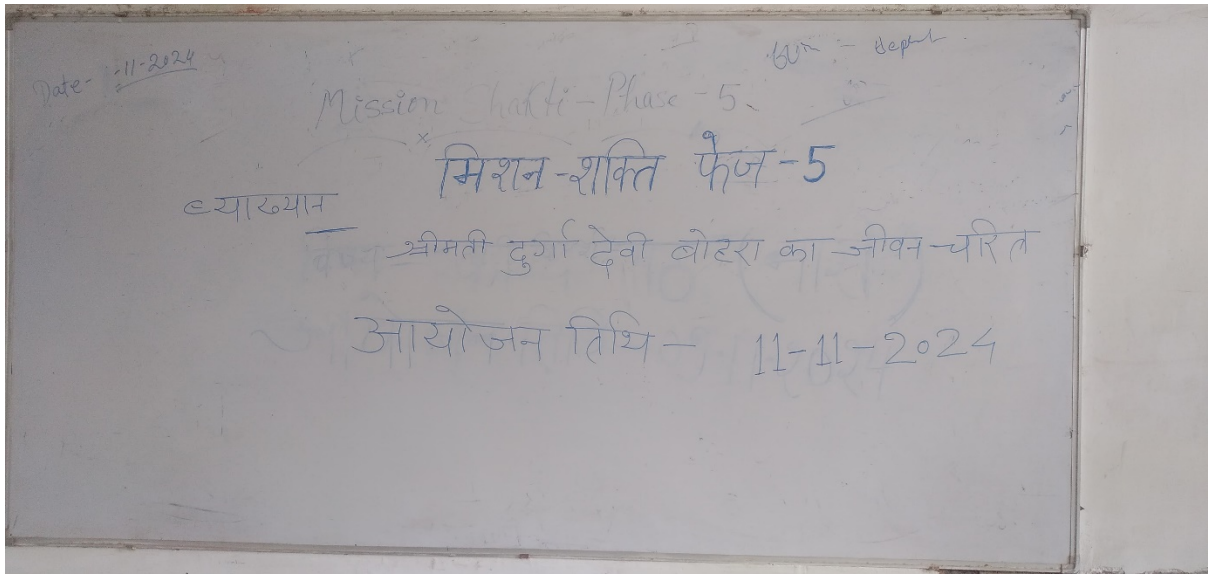 Date- -11-2024
Mission Shakti - Phase - 5.
मिशन-शक्ति फेज-5
व्याख्यान
श्रीमती दुर्गा देवी बोहरा का जीवन-चरित
आयोजन तिथि - 11-11-2024